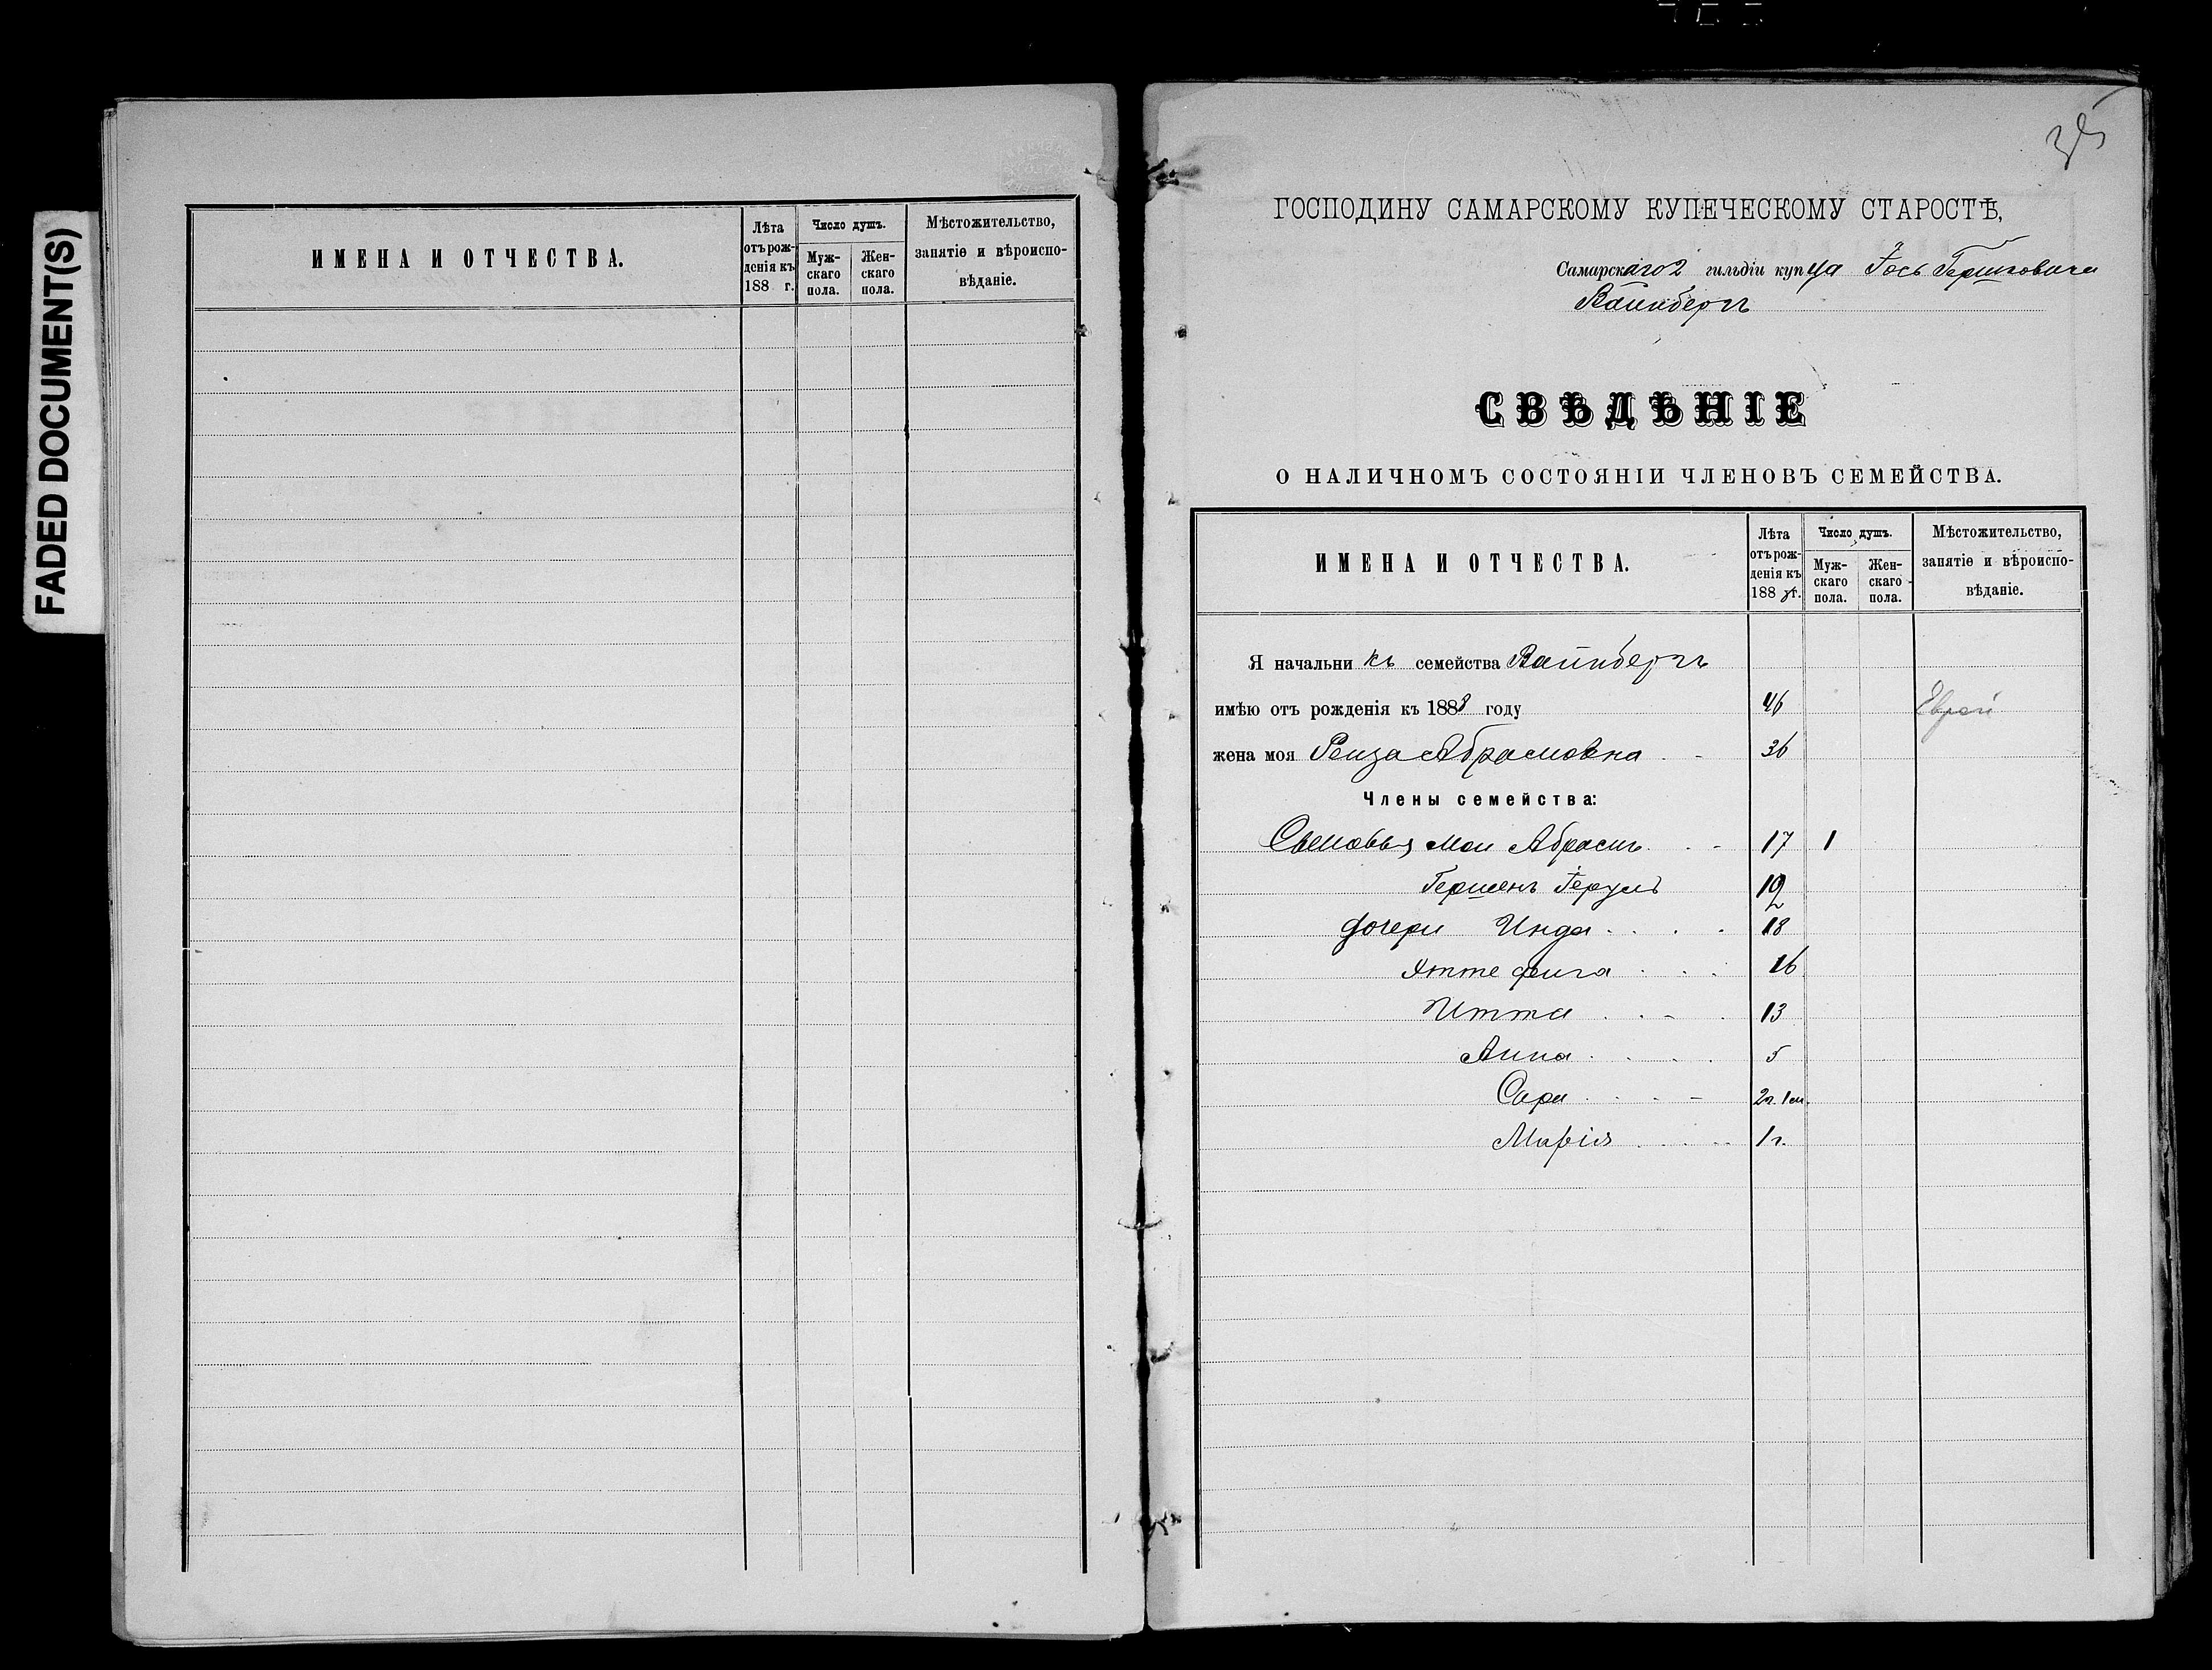 FADED DOCUMENT(S)
ИМЕНА И ОТЧЕСТВА.
Лѣта отъ рожденія къ 188 г.
Число душъ.
Мужскаго пола.
Женскаго пола.
Мѣстожительство, занятіе и вѣроисповѣданіе.
35
ГОСПОДИНУ САМАРСКОМУ КУПЕЧЕСКОМУ СТАРОСТѢ,
Самарскаго 2 гильдіи купца Іось Гершовича
Вайнбергъ
СВѢДѢНІЕ
О НАЛИЧНОМЪ СОСТОЯНІИ ЧЛЕНОВЪ СЕМЕЙСТВА.
ИМЕНА И ОТЧЕСТВА.
Лѣта отъ рожденія къ 188 г.
Число душъ.
Мужскаго пола.
Женскаго пола.
Мѣстожительство, занятіе и вѣроисповѣданіе.
Я начальникъ семейства Вайнбергъ
имѣю отъ рожденія къ 1888 году 46 Еврей
жена моя Рейза Абрамовна 36
Члены семейства:
Сыновья мои Абрамъ 17 1
Гершенъ
дочери Инда 18
фейга 16
Итта 13
Анна 5
Сара 2 г. 1 м.
Марія 1 г.